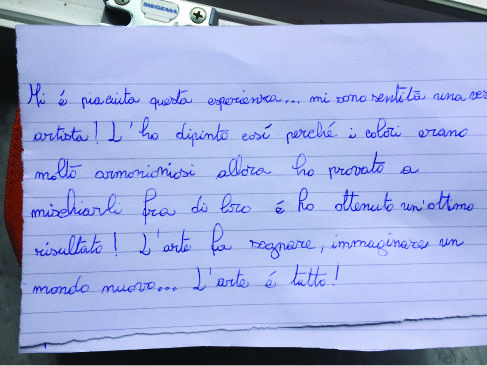 SIEGENIA
Mi é piaciuta questa esperienza... mi sono sentita una ver
artista! L'ho dipinto cosí perché i colori erano
molto armonioniosi allora ho provato a
mischiarli fra di loro é ho ottenuto un'ottimo
risultato! L'arte fa sognare, immaginare un
mondo nuovo... L'arte é tutto!